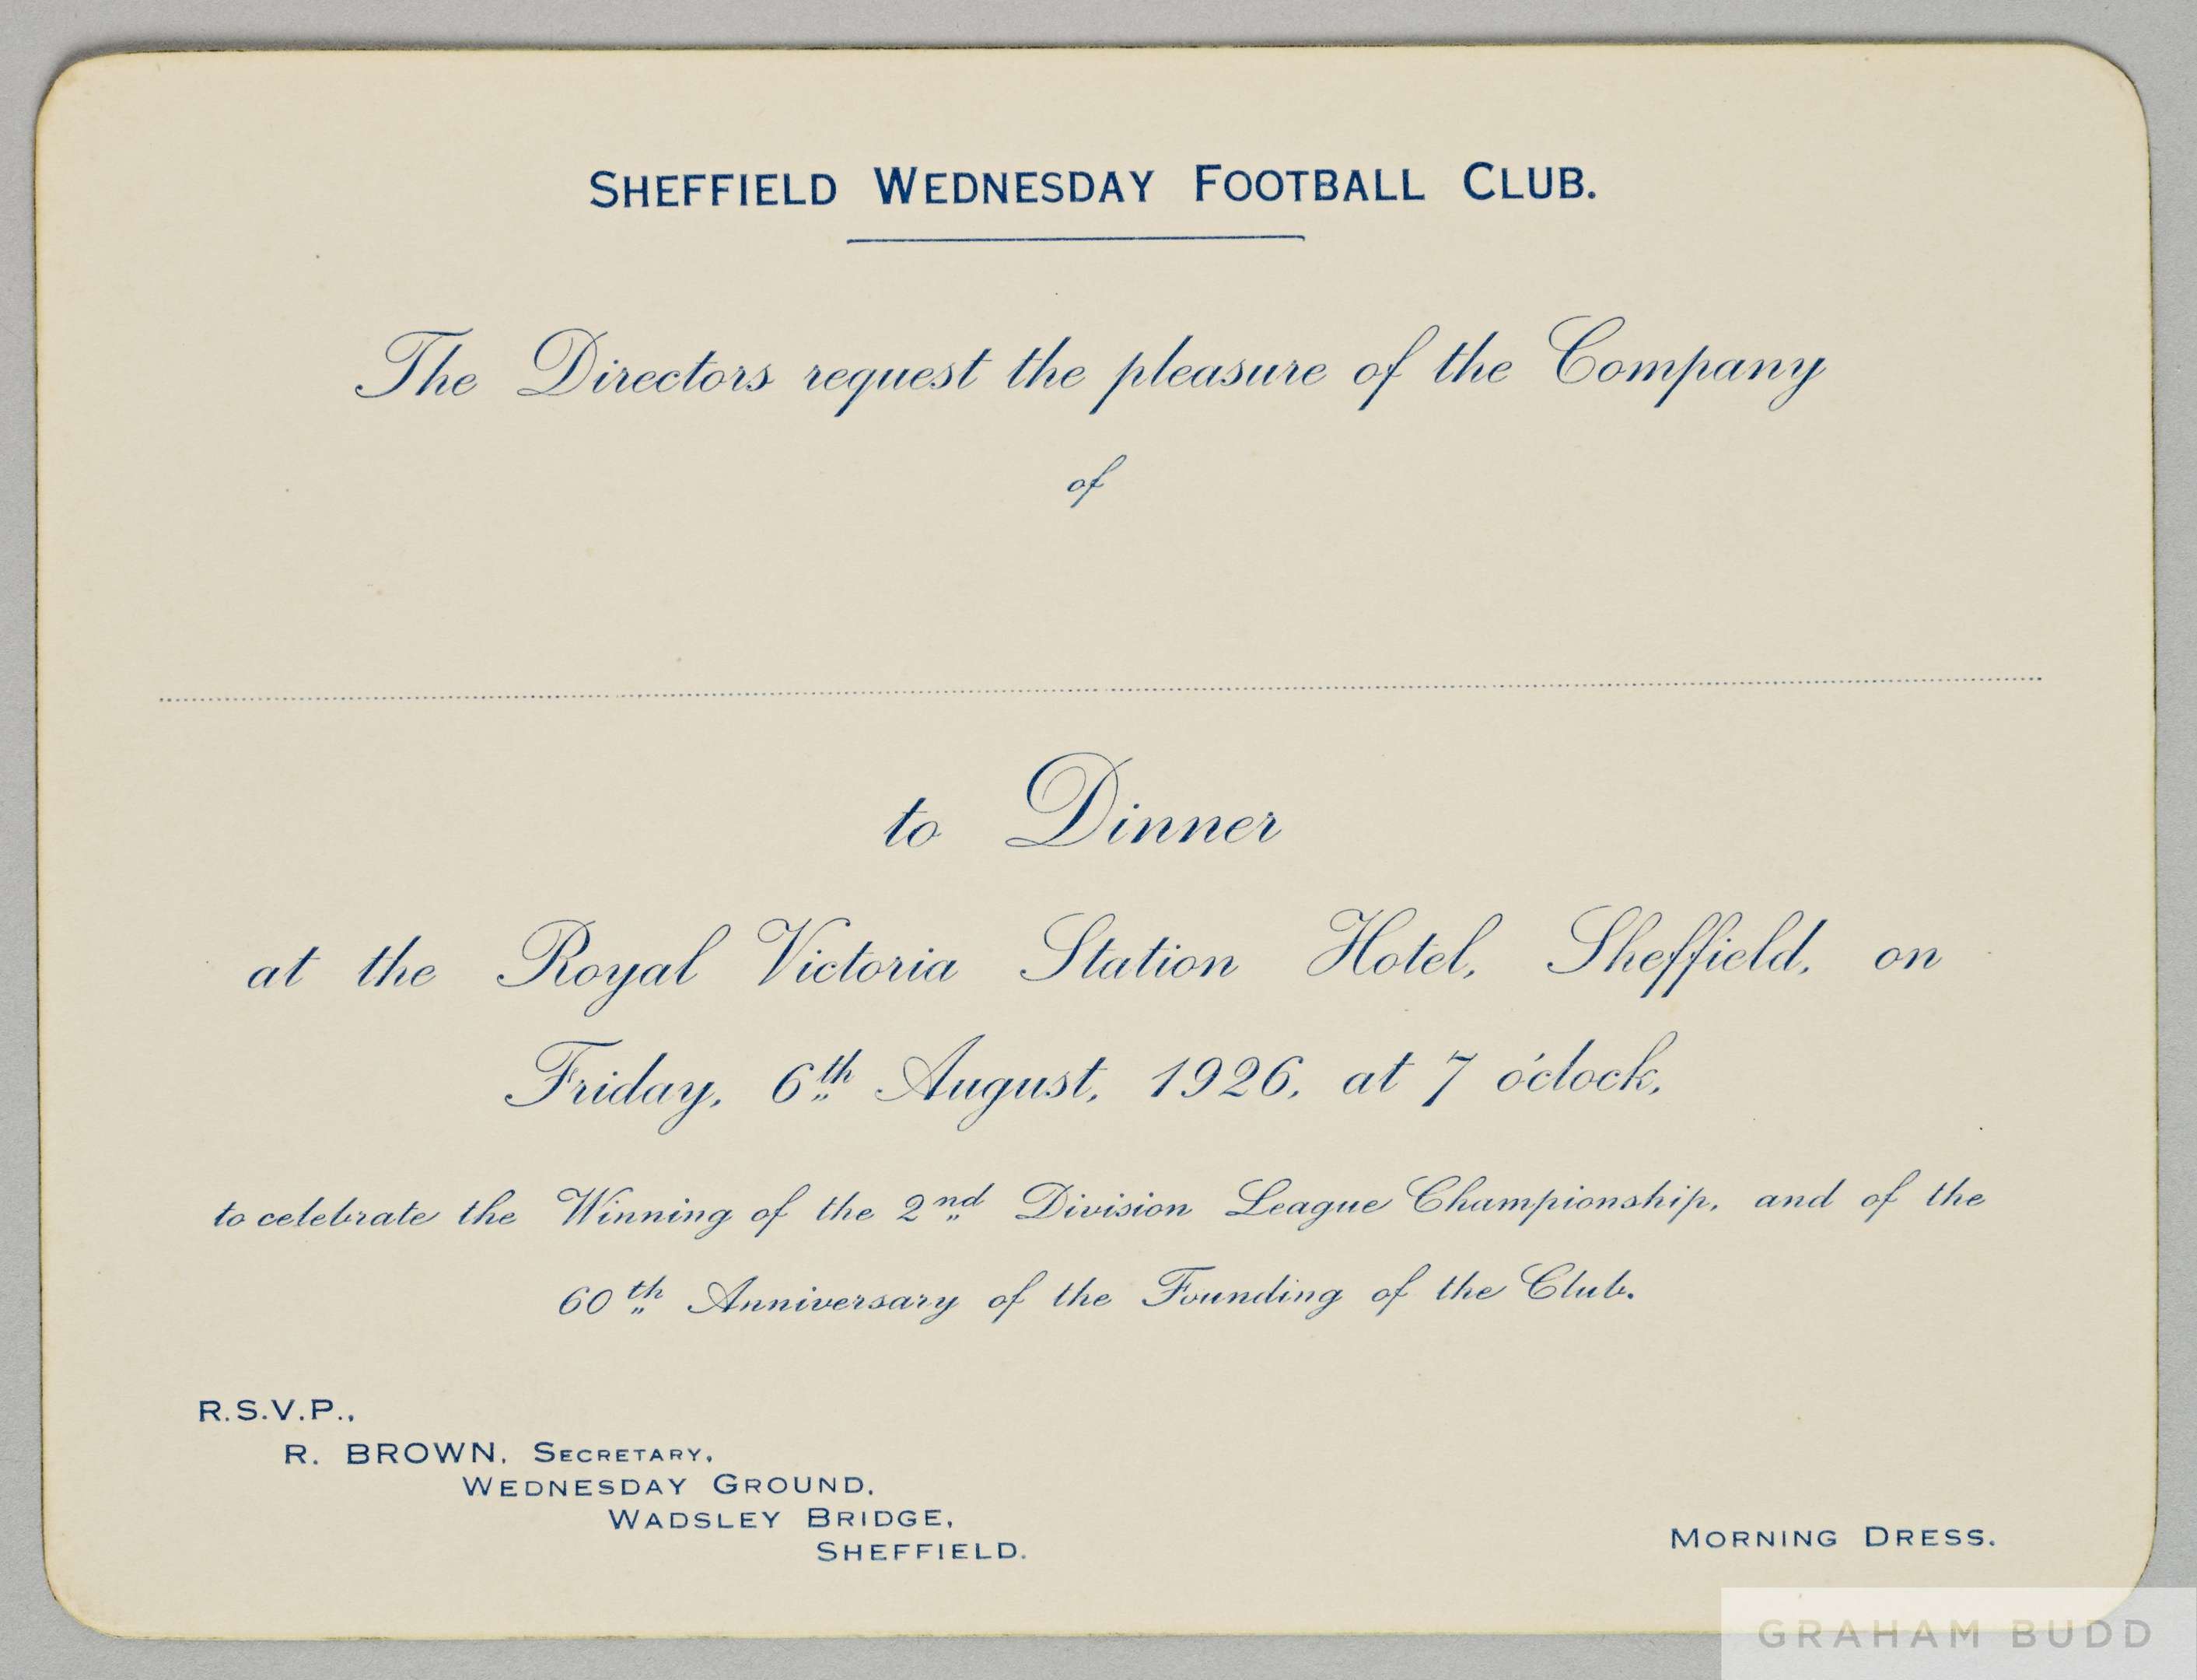 SHEFFIELD WEDNESDAY FOOTBALL CLUB.
The Directors request the pleasure of the Company
of
to Dinner
at the Royal Victoria Station Hotel, Sheffield, on
Friday, 6th August, 1926, at 7 o'clock,
to celebrate the Winning of the 2nd Division League Championship, and of the
60th Anniversary of the Founding of the Club.
R.S.V.P.,
R. BROWN, SECRETARY,
WEDNESDAY GROUND,
WADSLEY BRIDGE,
SHEFFIELD.
MORNING DRESS.
GRAHAM BUDD